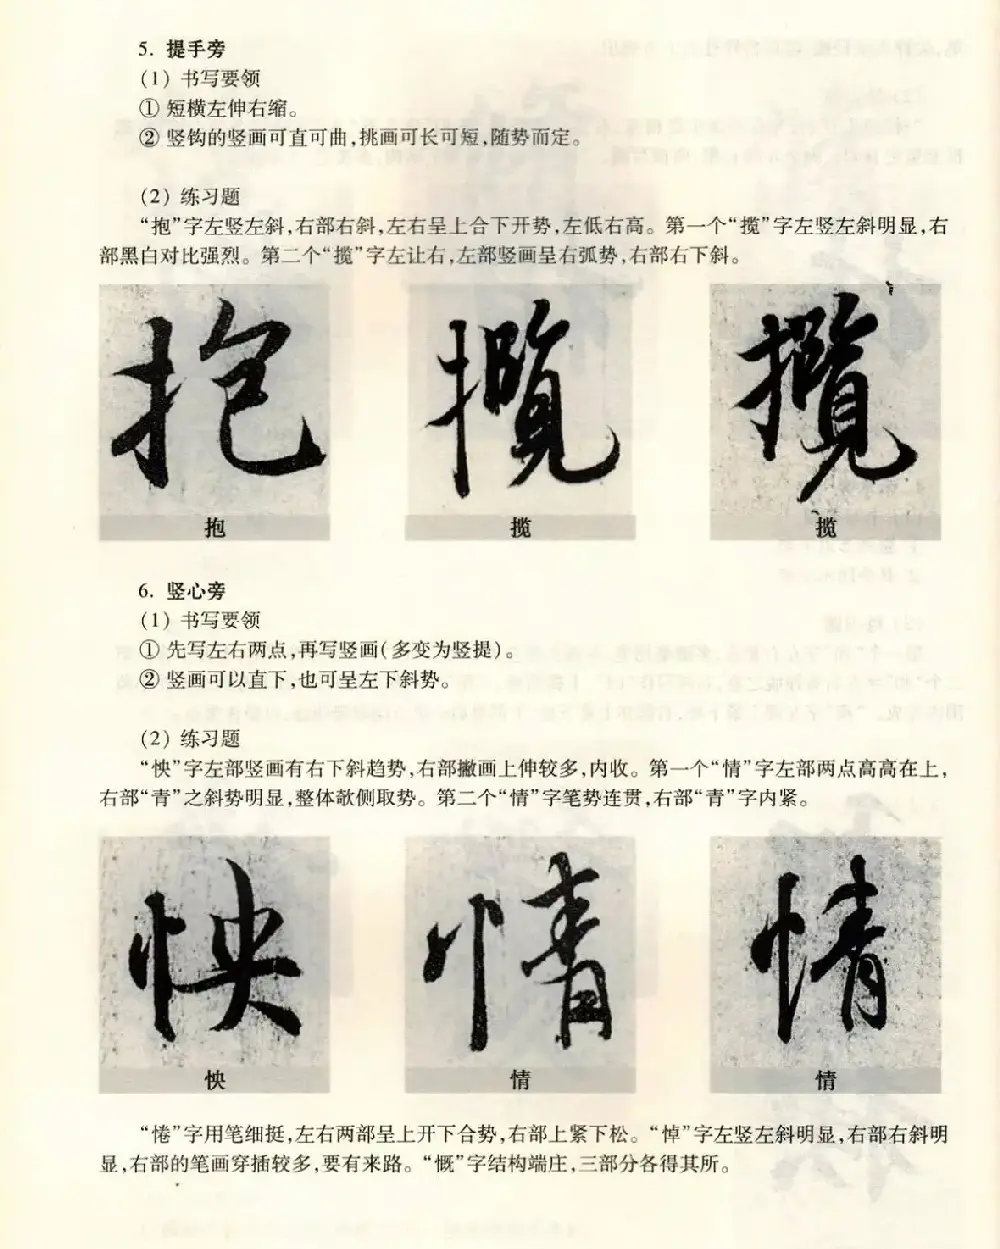 5. 提手旁
(1) 书写要领
① 短横左伸右缩。
② 竖钩的竖画可直可曲,挑画可长可短,随势而定。
(2) 练习题
“抱”字左竖左斜,右部右斜,左右呈上合下开势,左低右高。第一个“揽”字左竖左斜明显,右
部黑白对比强烈。第二个“揽”字左让右,左部竖画呈右弧势,右部右下斜。
抱 揽 揽
抱 揽 揽
6. 竖心旁
(1) 书写要领
① 先写左右两点,再写竖画(多变为竖提)。
② 竖画可以直下,也可呈左下斜势。
(2) 练习题
“怏”字左部竖画有右下斜趋势,右部撇画上伸较多,内收。第一个“情”字左部两点高高在上,
右部“青”之斜势明显,整体欹侧取势。第二个“情”字笔势连贯,右部“青”字内紧。
怏 情 情
怏 情 情
“惓”字用笔细挺,左右两部呈上开下合势,右部上紧下松。“悼”字左竖左斜明显,右部右斜明
显,右部的笔画穿插较多,要有来路。“慨”字结构端庄,三部分各得其所。